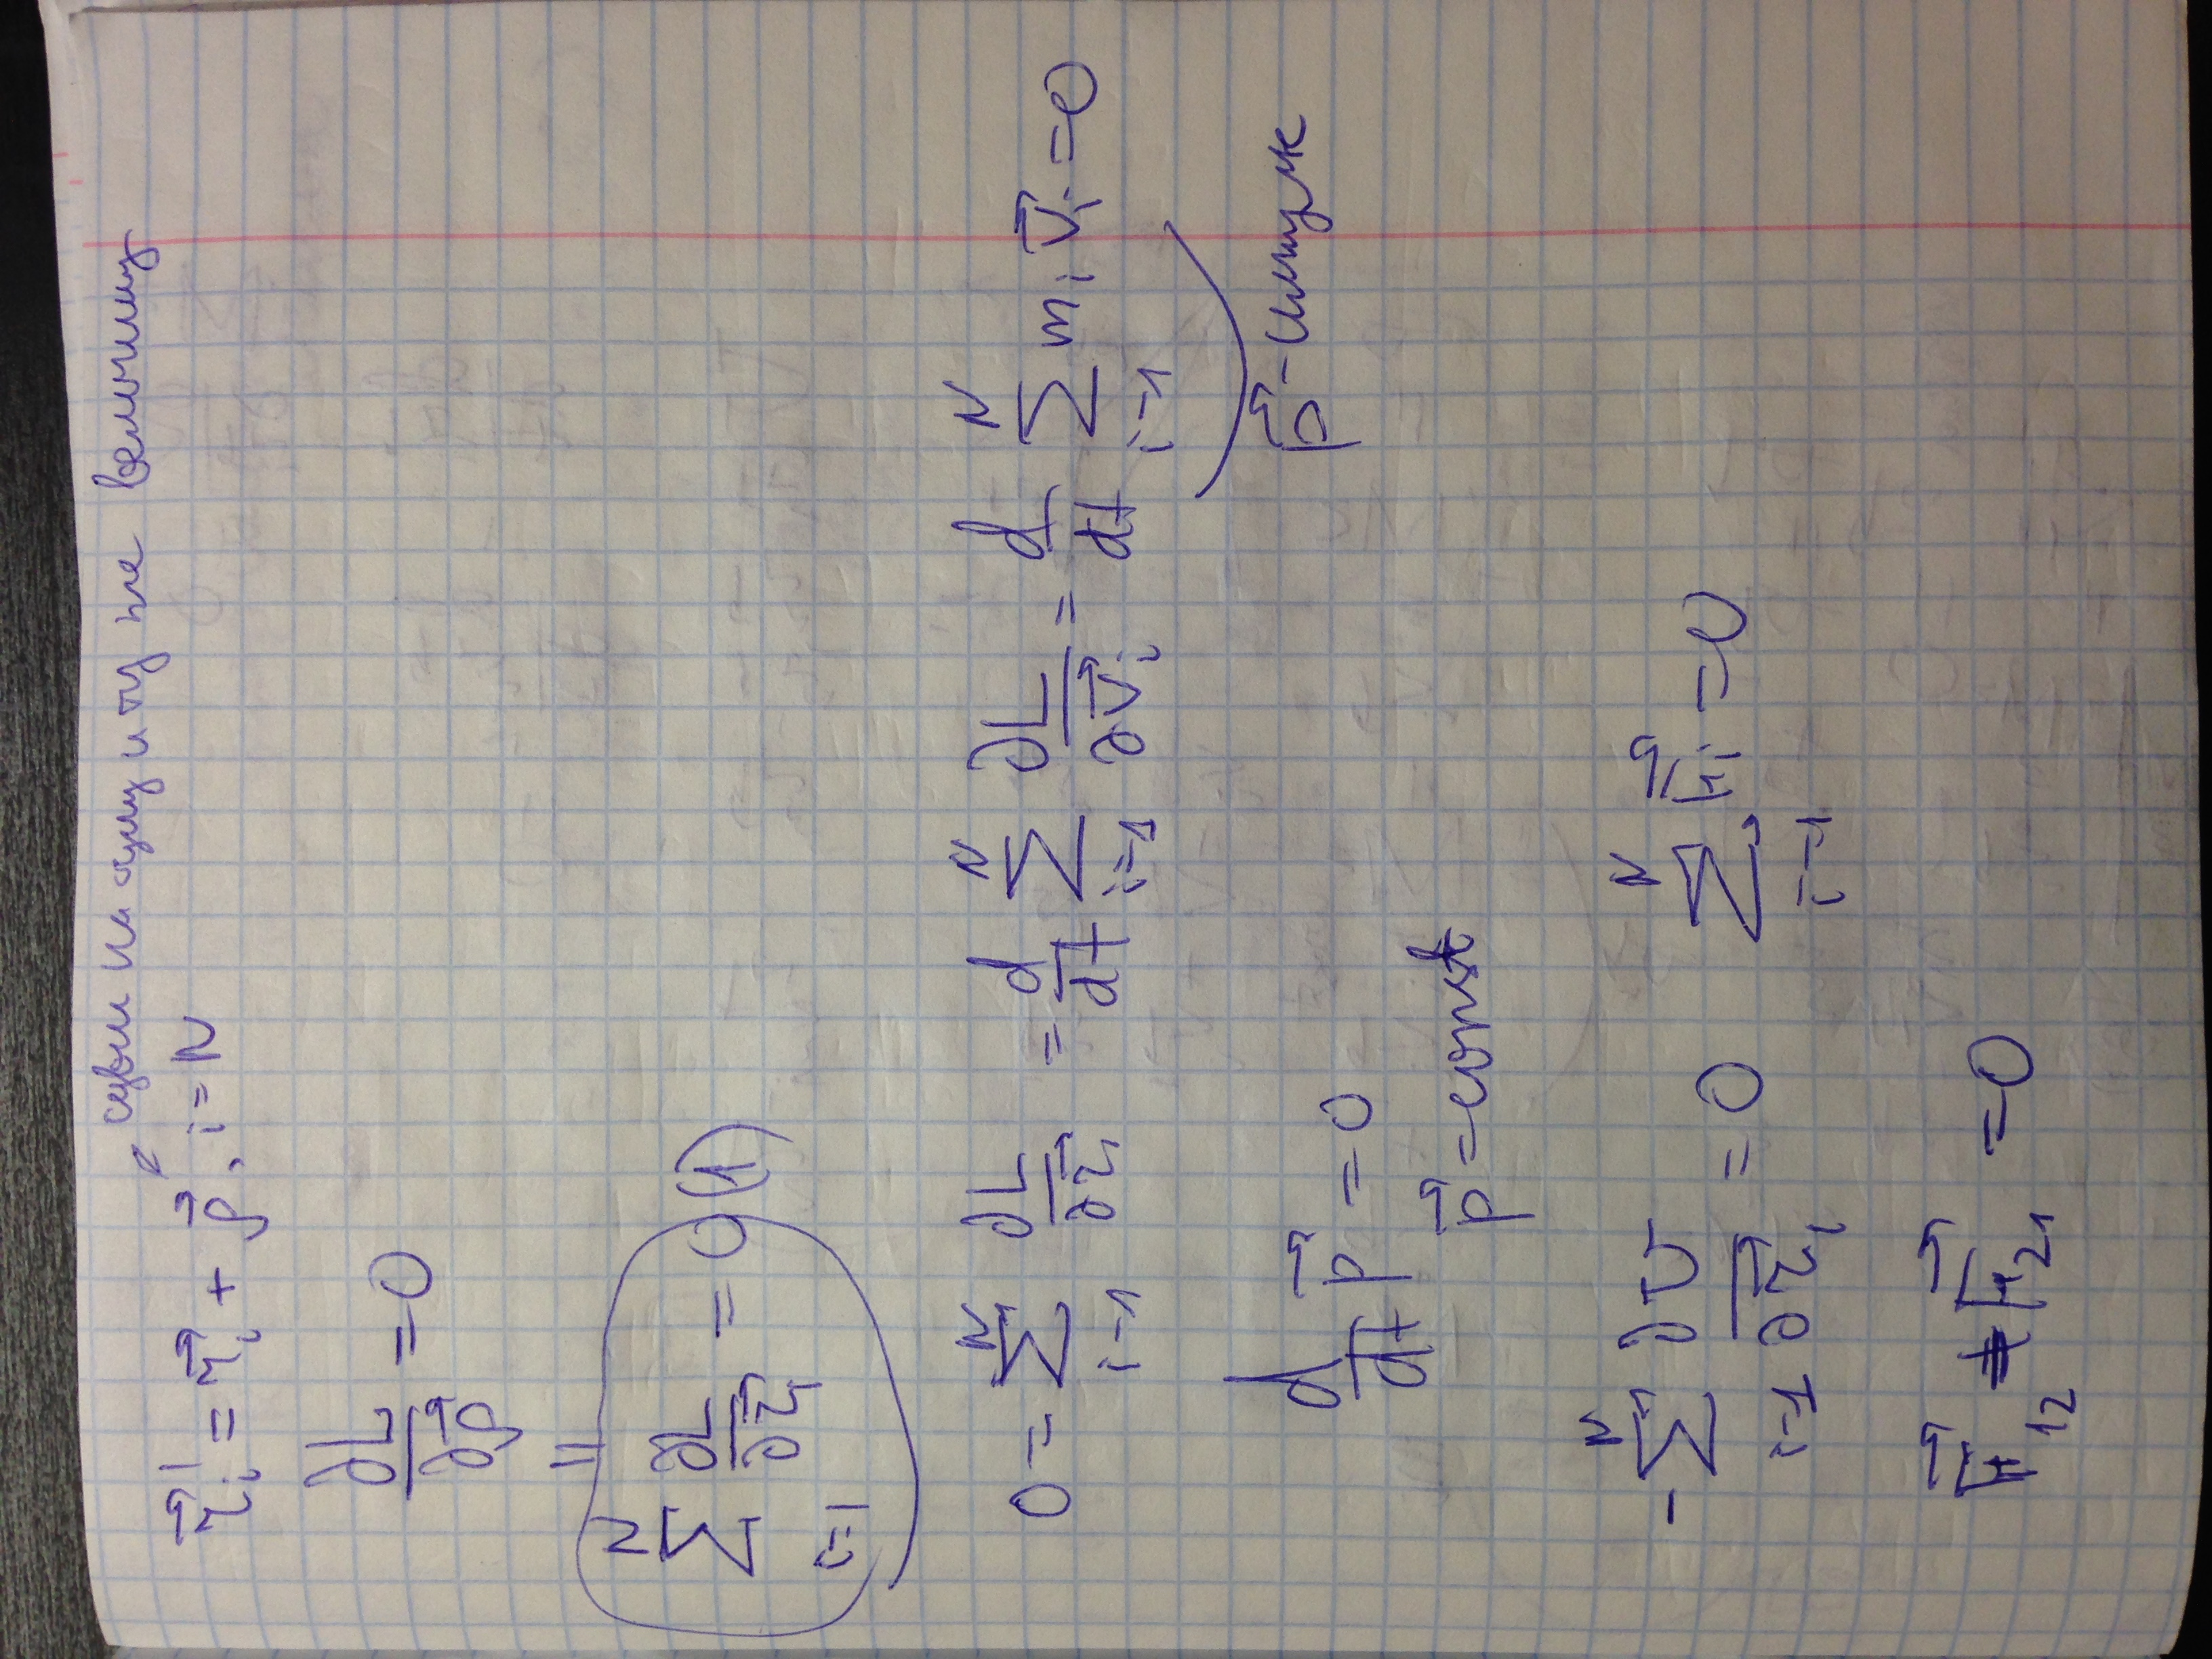 сдвиг на одну и ту же величину
r⃗ᵢ' = r⃗ᵢ + ρ⃗, i = N
∂L/∂ρ⃗ = 0
||
∑_{i=1}^{N} ∂L/∂r⃗ᵢ = 0 (1)
0 = ∑_{i=1}^{N} ∂L/∂r⃗ᵢ = d/dt ∑_{i=1}^{N} ∂L/∂v⃗ᵢ = d/dt ∑_{i=1}^{N} mᵢ v⃗ᵢ = 0
p⃗ - импульс
d/dt p⃗ = 0
p⃗ = const
- ∑_{i=1}^{N} ∂U/∂r⃗ᵢ = 0 ∑_{i=1}^{N} F⃗ᵢ = 0
F⃗₁₂ + F⃗₂₁ = 0